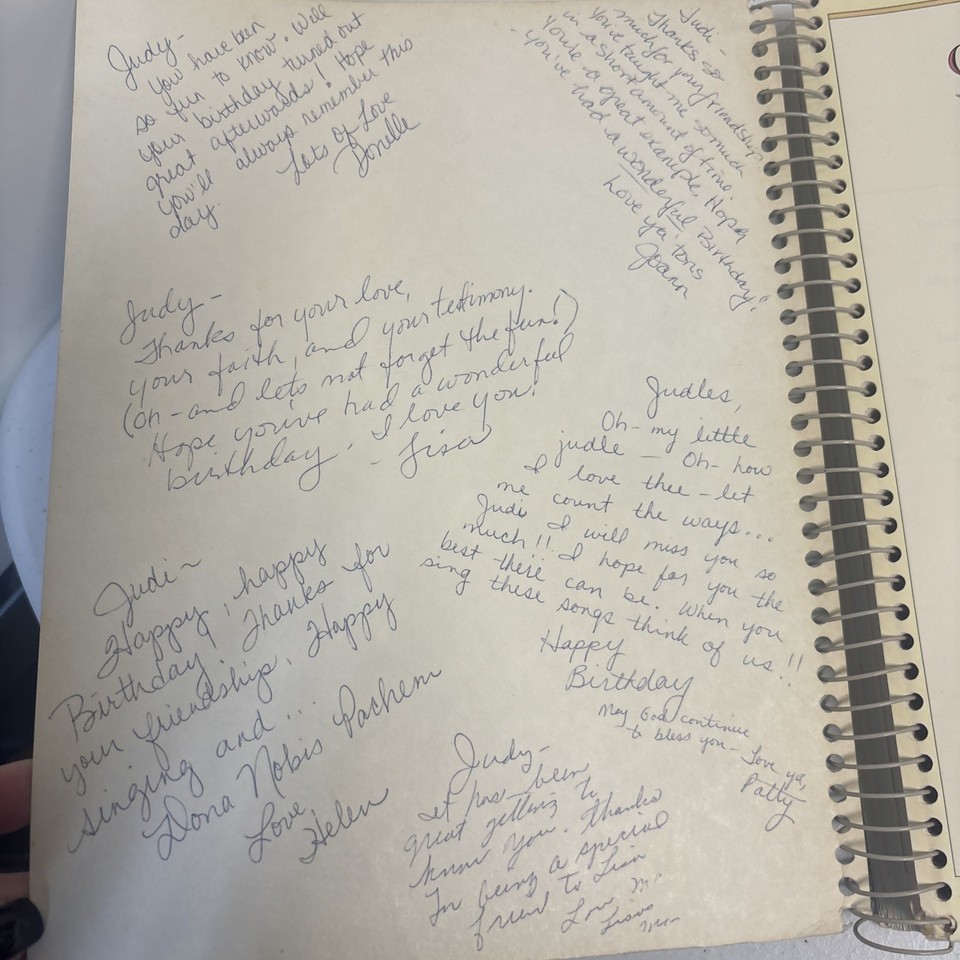 Judy-
You have been
so fun to know. Well
your birthday turned out
great afterwards! Hope
you'll always remember this
day.
Lots of Love
Donelle
Judi-
Thanks so
much for your friendship
You've taught me so much
in a short amount of time.
You're a great example. Hope
you've had a wonderful Birthday!
Love ya' tons
Joann
Judy-
Thanks for your love,
your faith, and your testimony.
(Oh-and let's not forget the fun!)
Hope you've had a wonderful
birthday. I love you!
- Lisa
Judles,
Oh-my little
judle - Oh-how
I love thee-let
me count the ways...
Judi I will miss you so
much!! I hope for you the
best there can be. When you
sing these songs think of us!!
Happy
Birthday
May God continue
to bless you- Love ya,
Patty
Judi-
Happy, happy
Birthday! Thanks for
your friendship. Happy
singing and...
Dona Nobis Pachem
Love,
Helen
Judy-
It has been
great getting to
know you. Thanks
for being a special
friend to Lisa
Love
Lisa's